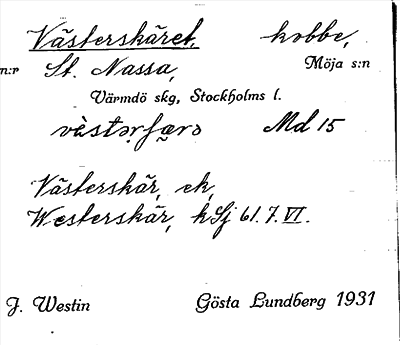 Västerskäret, kobbe,
n:r St. Nassa, Möja s:n
Värmdö skg, Stockholms l.
Md 15
Västerskär, ek,
Westerskär, hSj 61.7.VI.
J. Westin Gösta Lundberg 1931